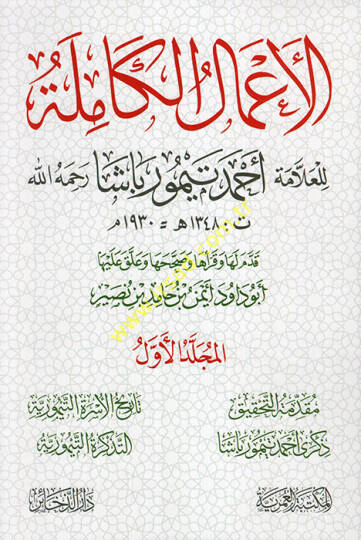 الأعمال الكاملة
للعلامة أحمد تيمور باشا رحمه الله
ت ١٣٤٨ هـ = ١٩٣٠ م
قدم لها وقرأها وصححها وعلق عليها
أبو داود أيمن بن حامد بن نصير
المجلد الأول
مقدمة التحقيق تاريخ الأسرة التيمورية
ذكرى أحمد تيمور باشا التذكرة التيمورية
المكتبة العمرية دار الذخائر